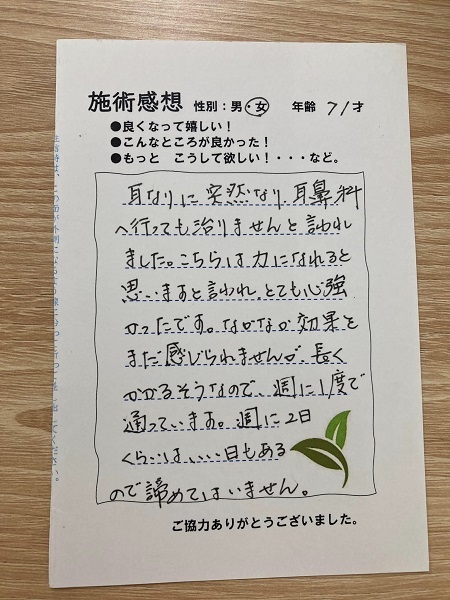 施術感想 性別：男・女 年齢 71才
●良くなって嬉しい！
●こんなところが良かった！
●もっと こうして欲しい！・・・など。
耳なりに突然なり耳鼻科
へ行っても治りませんと言われ
ました。こちらは力になれると
思いますと言われ、とても心強
かったです。なかなか効果を
まだ感じられませんが、長く
かかるそうなので、週に1度で
通っています。週に2日
くらいは、いい日もある
ので諦めてはいません。
ご協力ありがとうございました。